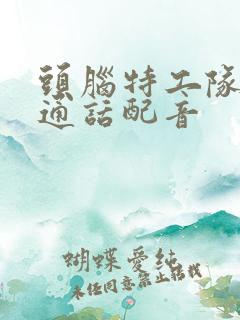 頭腦特工隊
通話配音
蝴蝶愛純
未任同意禁止轉載